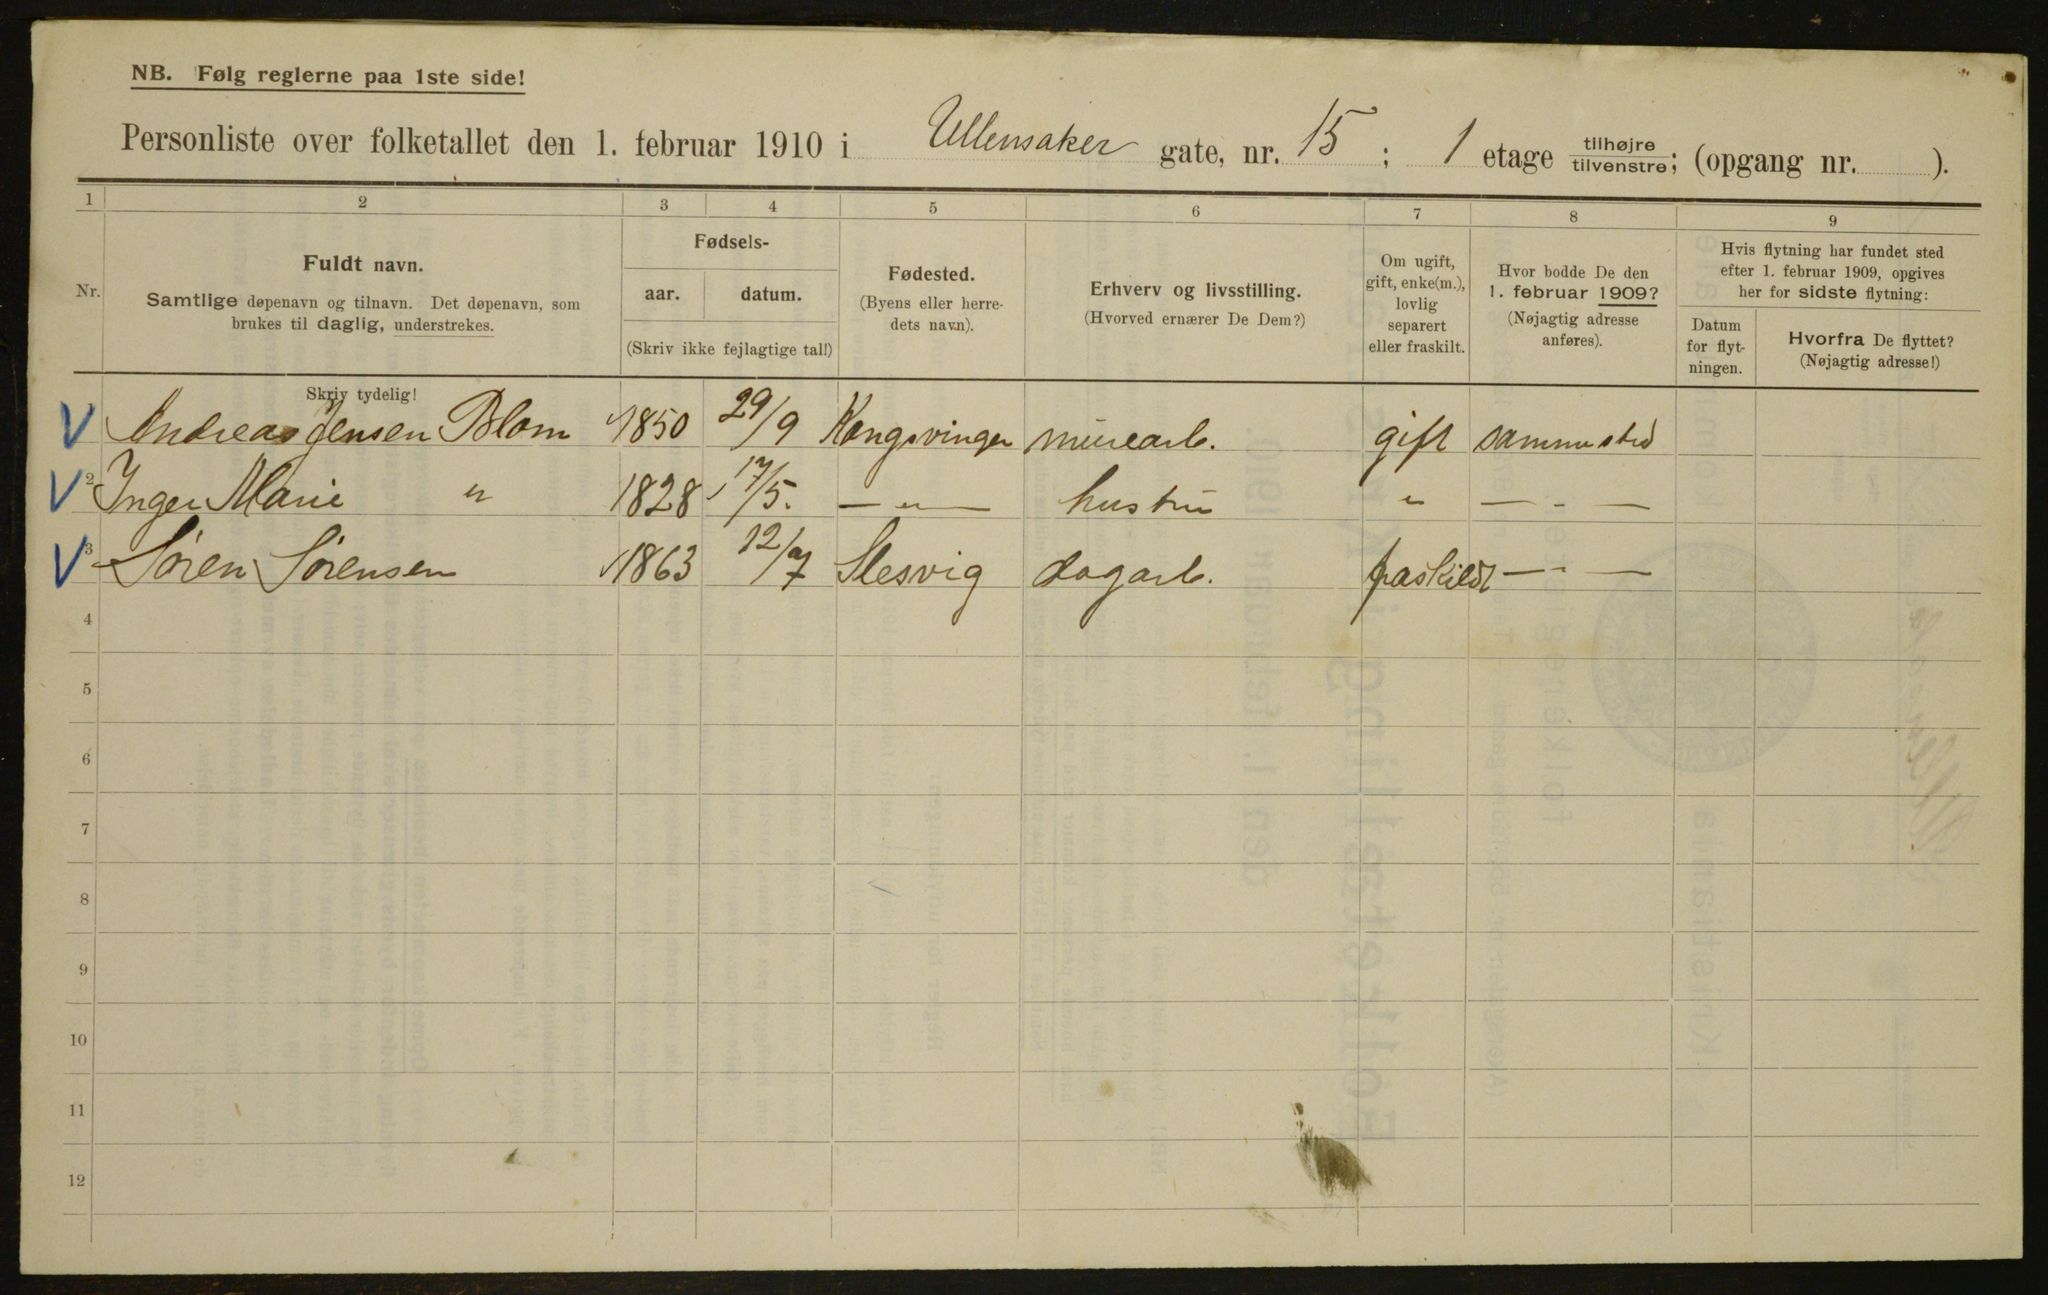 NB. Følg reglerne paa 1ste side!
Personliste over folketallet den 1. februar 1910 i Ullensaker gate, nr. 15 ; 1 etage tilhøjre tilvenstre; (opgang nr. ).
1 2 3 4 5 6 7 8 9
Nr.
Fuldt navn.
Samtlige døpenavn og tilnavn. Det døpenavn, som
brukes til daglig, understrekes.
Skriv tydelig!
Fødsels-
aar. datum.
(Skriv ikke fejlagtige tal!)
Fødested.
(Byens eller herre-
dets navn).
Erhverv og livsstilling.
(Hvorved ernærer De Dem?)
Om ugift,
gift, enke(m.),
lovlig
separert
eller fraskilt.
Hvor bodde De den
1. februar 1909?
(Nøjagtig adresse
anføres).
Hvis flytning har fundet sted
efter 1. februar 1909, opgives
her for sidste flytning:
Datum
for flyt-
ningen.
Hvorfra De flyttet?
(Nøjagtig adresse!)
V Andreas Jensen Blom 1850 29/9 Kongsvinger murearb. gift sammested
V 2 Inger Marie " 1828 17/5. — " — hustru " — " —
V 3 Søren Sørensen 1863 12/7 Slesvig dagarb. fraskildt — " —
4
5
6
7
8
9
10
11
12